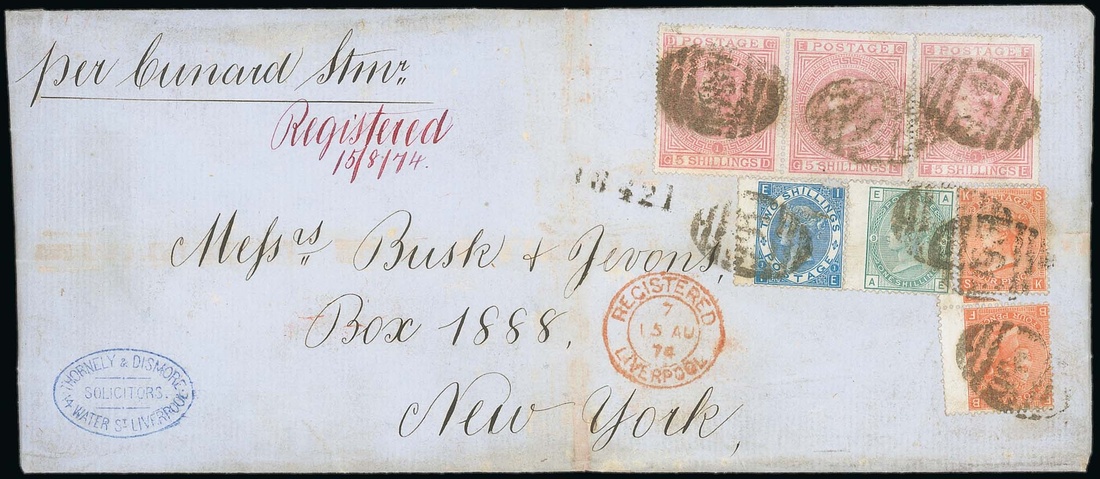 per Cunard Stmr
Registered
15/8/74.
Messrs Busk & Jevons,
Box 1888.
New York,
421
REGISTERED
7
15 AU
74
LIVERPOOL
THORNELY & DISMORE
SOLICITORS.
14 WATER ST LIVERPOOL
D POSTAGE G
G 5 SHILLINGS D
E POSTAGE G
G 5 SHILLINGS E
E POSTAGE F
F 5 SHILLINGS E
E I
TWO SHILLINGS
POSTAGE
I E
E A
ONE SHILLING
A E
S
S K
F B
B